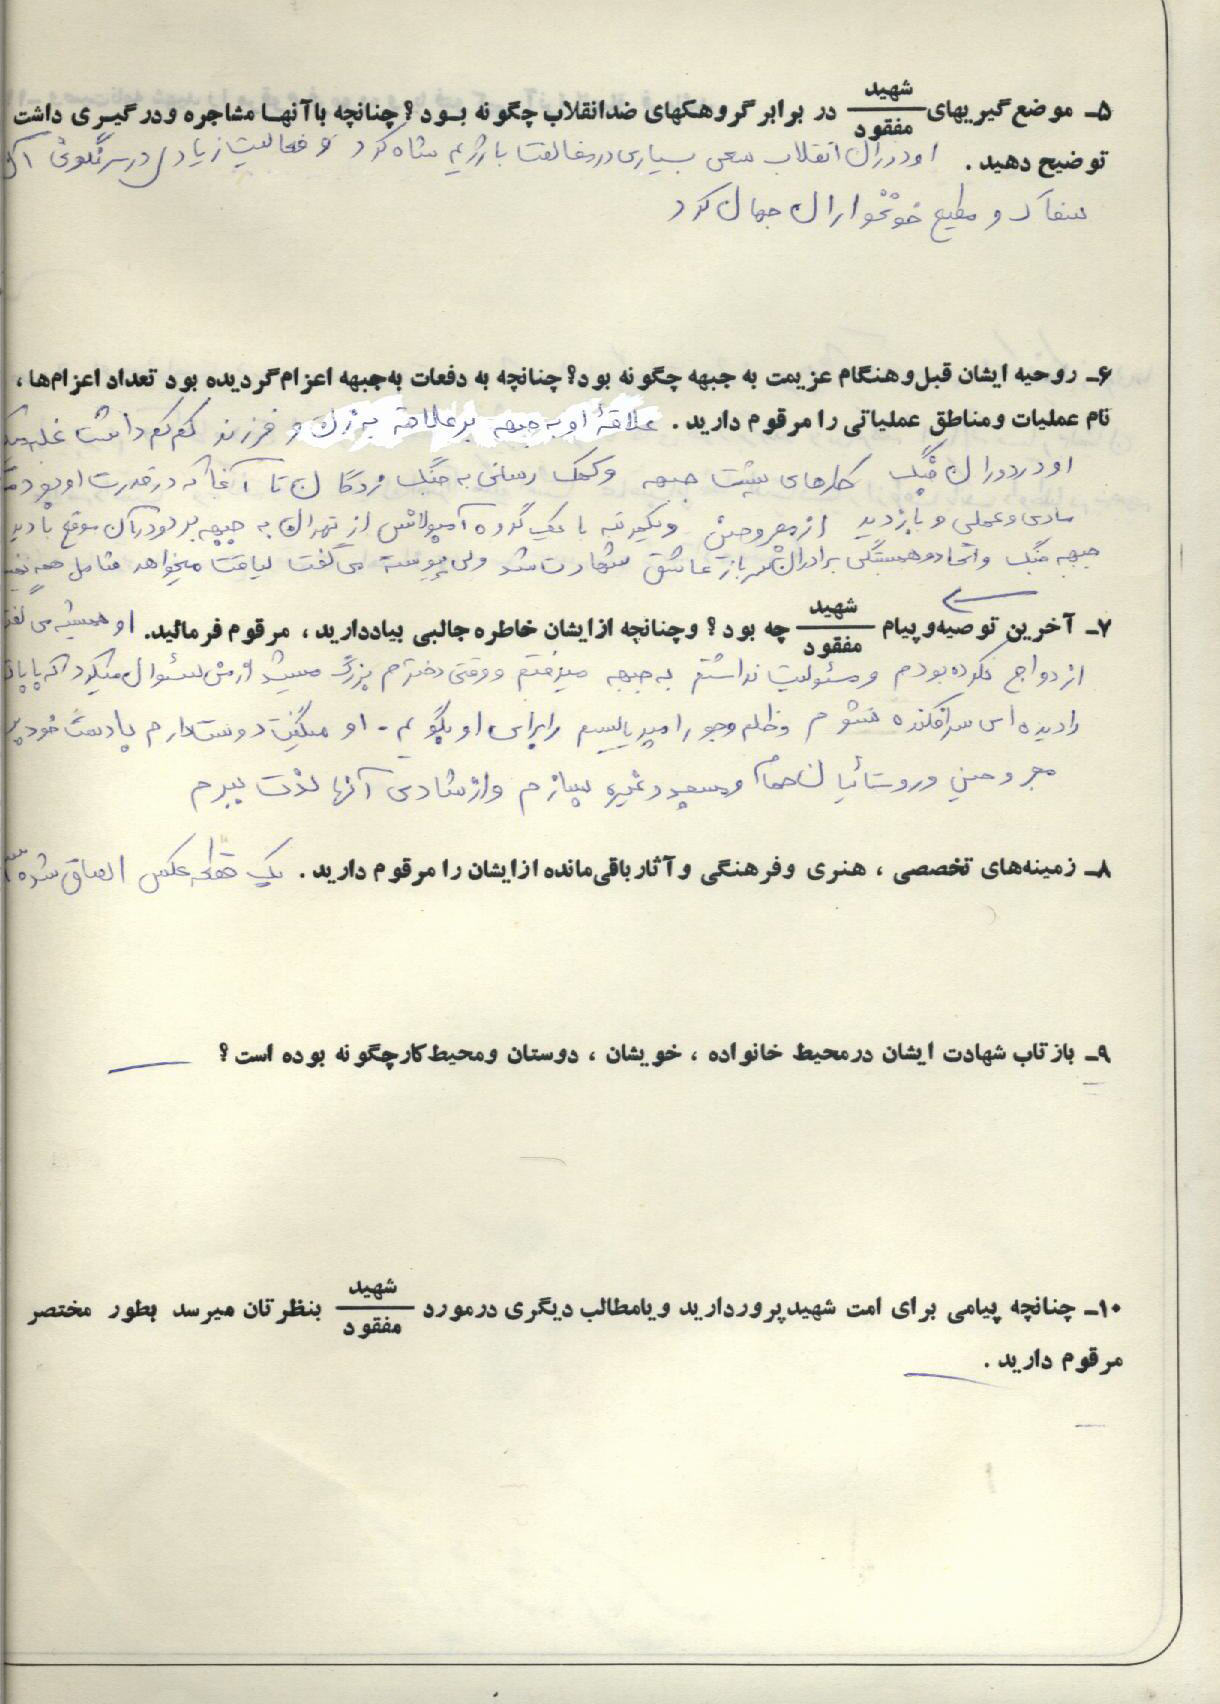 ۵ـ موضع گیریهای شهید/مفقود در برابر گروهکهای ضدانقلاب چگونه بود؟ چنانچه باآنها مشاجره ودرگیری داشت
توضیح دهید. او دوران انقلاب سعی بسیاری در مخالفت با رژیم شاه کرد و فعالیت زیادی در سرنگونی آن
سفاک و مطیع خونخواران جهان کرد
۶ـ روحیه ایشان قبل وهنگام عزیمت به جبهه چگونه بود؟ چنانچه به دفعات به جبهه اعزام گردیده بود تعداد اعزام‌ها،
نام عملیات ومناطق عملیاتی را مرقوم دارید. علاقهٔ او به جبهه بر علاقه به زن و فرزند کم کم داشت غلبه
او در دوران جنگ کارهای پشت جبهه و کمک رسانی به جنگ زدگان تا آنجا که در قدرت او بود
مادی و عملی و بازدید از مجروحین و یکمرتبه با یک گروه آمبولانس از تهران به جبهه بر در آن موقع با دیدن
جبهه جنگ و اتحاد و همبستگی برادران سرباز عاشق شهادت شد ولی پیوسته می گفت لیاقت میخواهد شامل همه
۷ـ آخرین توصیه وپیام شهید/مفقود چه بود؟ وچنانچه ازایشان خاطره جالبی بیاددارید، مرقوم فرمائید. او همیشه می گفت
ازدواج نکرده بودم و مسئولیت نداشتم به جبهه میرفتم و وقتی دخترم بزرگ میشد از من سئوال میکرد که بابا
را دیده ای سرافکنده نشوم و ظلم و جور امپریالیسم را برای او بگویم - او میگفت دوست دارم با دست خود
مجروحین و روستائیان حمام و مسجد و غیره بسازم و از شادی آنها لذت ببرم
۸ـ زمینه‌های تخصصی، هنری وفرهنگی و آثار باقی‌مانده ازایشان را مرقوم دارید. یک قطعه عکس الصاق شده
۹ـ بازتاب شهادت ایشان درمحیط خانواده، خویشان، دوستان ومحیط کارچگونه بوده است؟
۱۰ـ چنانچه پیامی برای امت شهیدپروردارید ویامطالب دیگری درمورد شهید/مفقود بنظرتان میرسد بطور مختصر
مرقوم دارید.